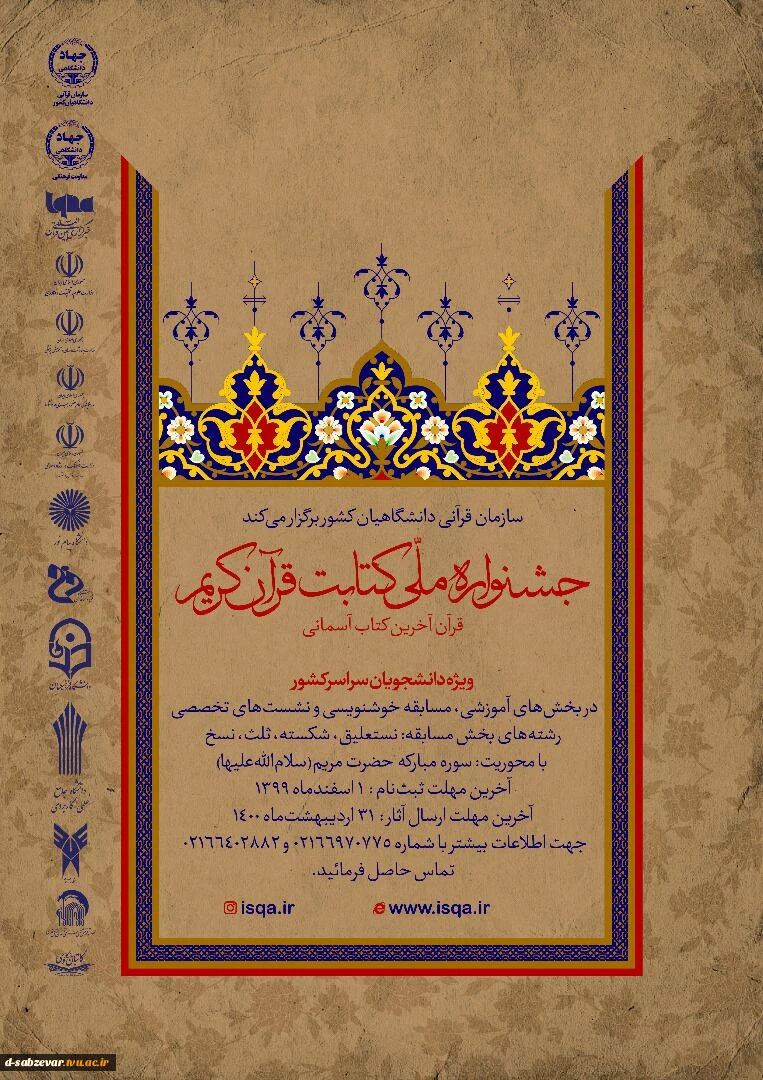 جهاد
دانشگاهی
سازمان قرآنی
دانشگاهیان کشور
جهاد
دانشگاهی
معاونت فرهنگی
iqna
دانشگاه پیام نور
دانشگاه فرهنگیان
دانشگاه جامع
علمی کاربردی
سازمان قرآنی دانشگاهیان کشور برگزار می‌کند
جشنواره ملّی کتابت قرآن کریم
قرآن آخرین کتاب آسمانی
ویژه دانشجویان سراسر کشور
در بخش‌های آموزشی، مسابقه خوشنویسی و نشست‌های تخصصی
رشته‌های بخش مسابقه: نستعلیق، شکسته، ثلث، نسخ
با محوریت: سوره مبارکه حضرت مریم (سلام‌الله‌علیها)
آخرین مهلت ثبت‌نام: ۱ اسفندماه ۱۳۹۹
آخرین مهلت ارسال آثار: ۳۱ اردیبهشت‌ماه ۱۴۰۰
جهت اطلاعات بیشتر با شماره ۰۲۱۶۶۹۷۰۷۷۵ و ۰۲۱۶۶۴۰۲۸۸۲
تماس حاصل فرمائید.
isqa.ir www.isqa.ir
d-sabzevar.tvu.ac.ir